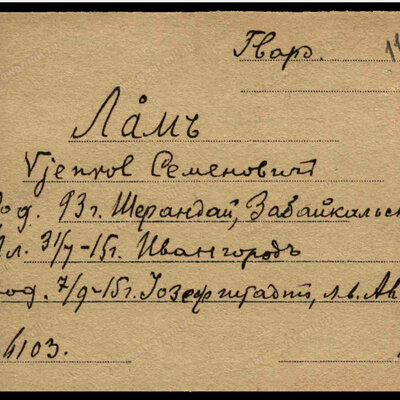 Гвар.
11
Ламъ
Vjenvol Семеновичъ
од. 93 г. Шерандай, Забайкальск
л. 31/7-15г. Ивангородъ
од. 7/9-15г. Іозефштадтъ, л.в. Ав
4103.